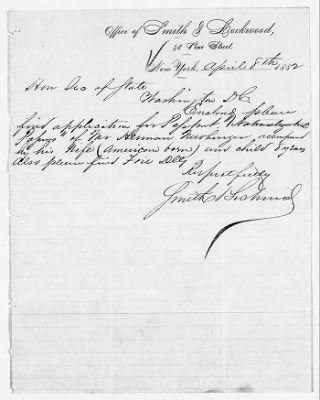 Office of Smith & Lockwood,
Pine Street
New York, April 8th 1882
Hon Sec of State
Washington D.C.
Enclosed please
find application for Passport & Naturalization
Papers of Mr Herman accompanied
by his Wife (American born) and child 8 years
Also please find Five Dlls
Respectfully
Smith & Lockwood